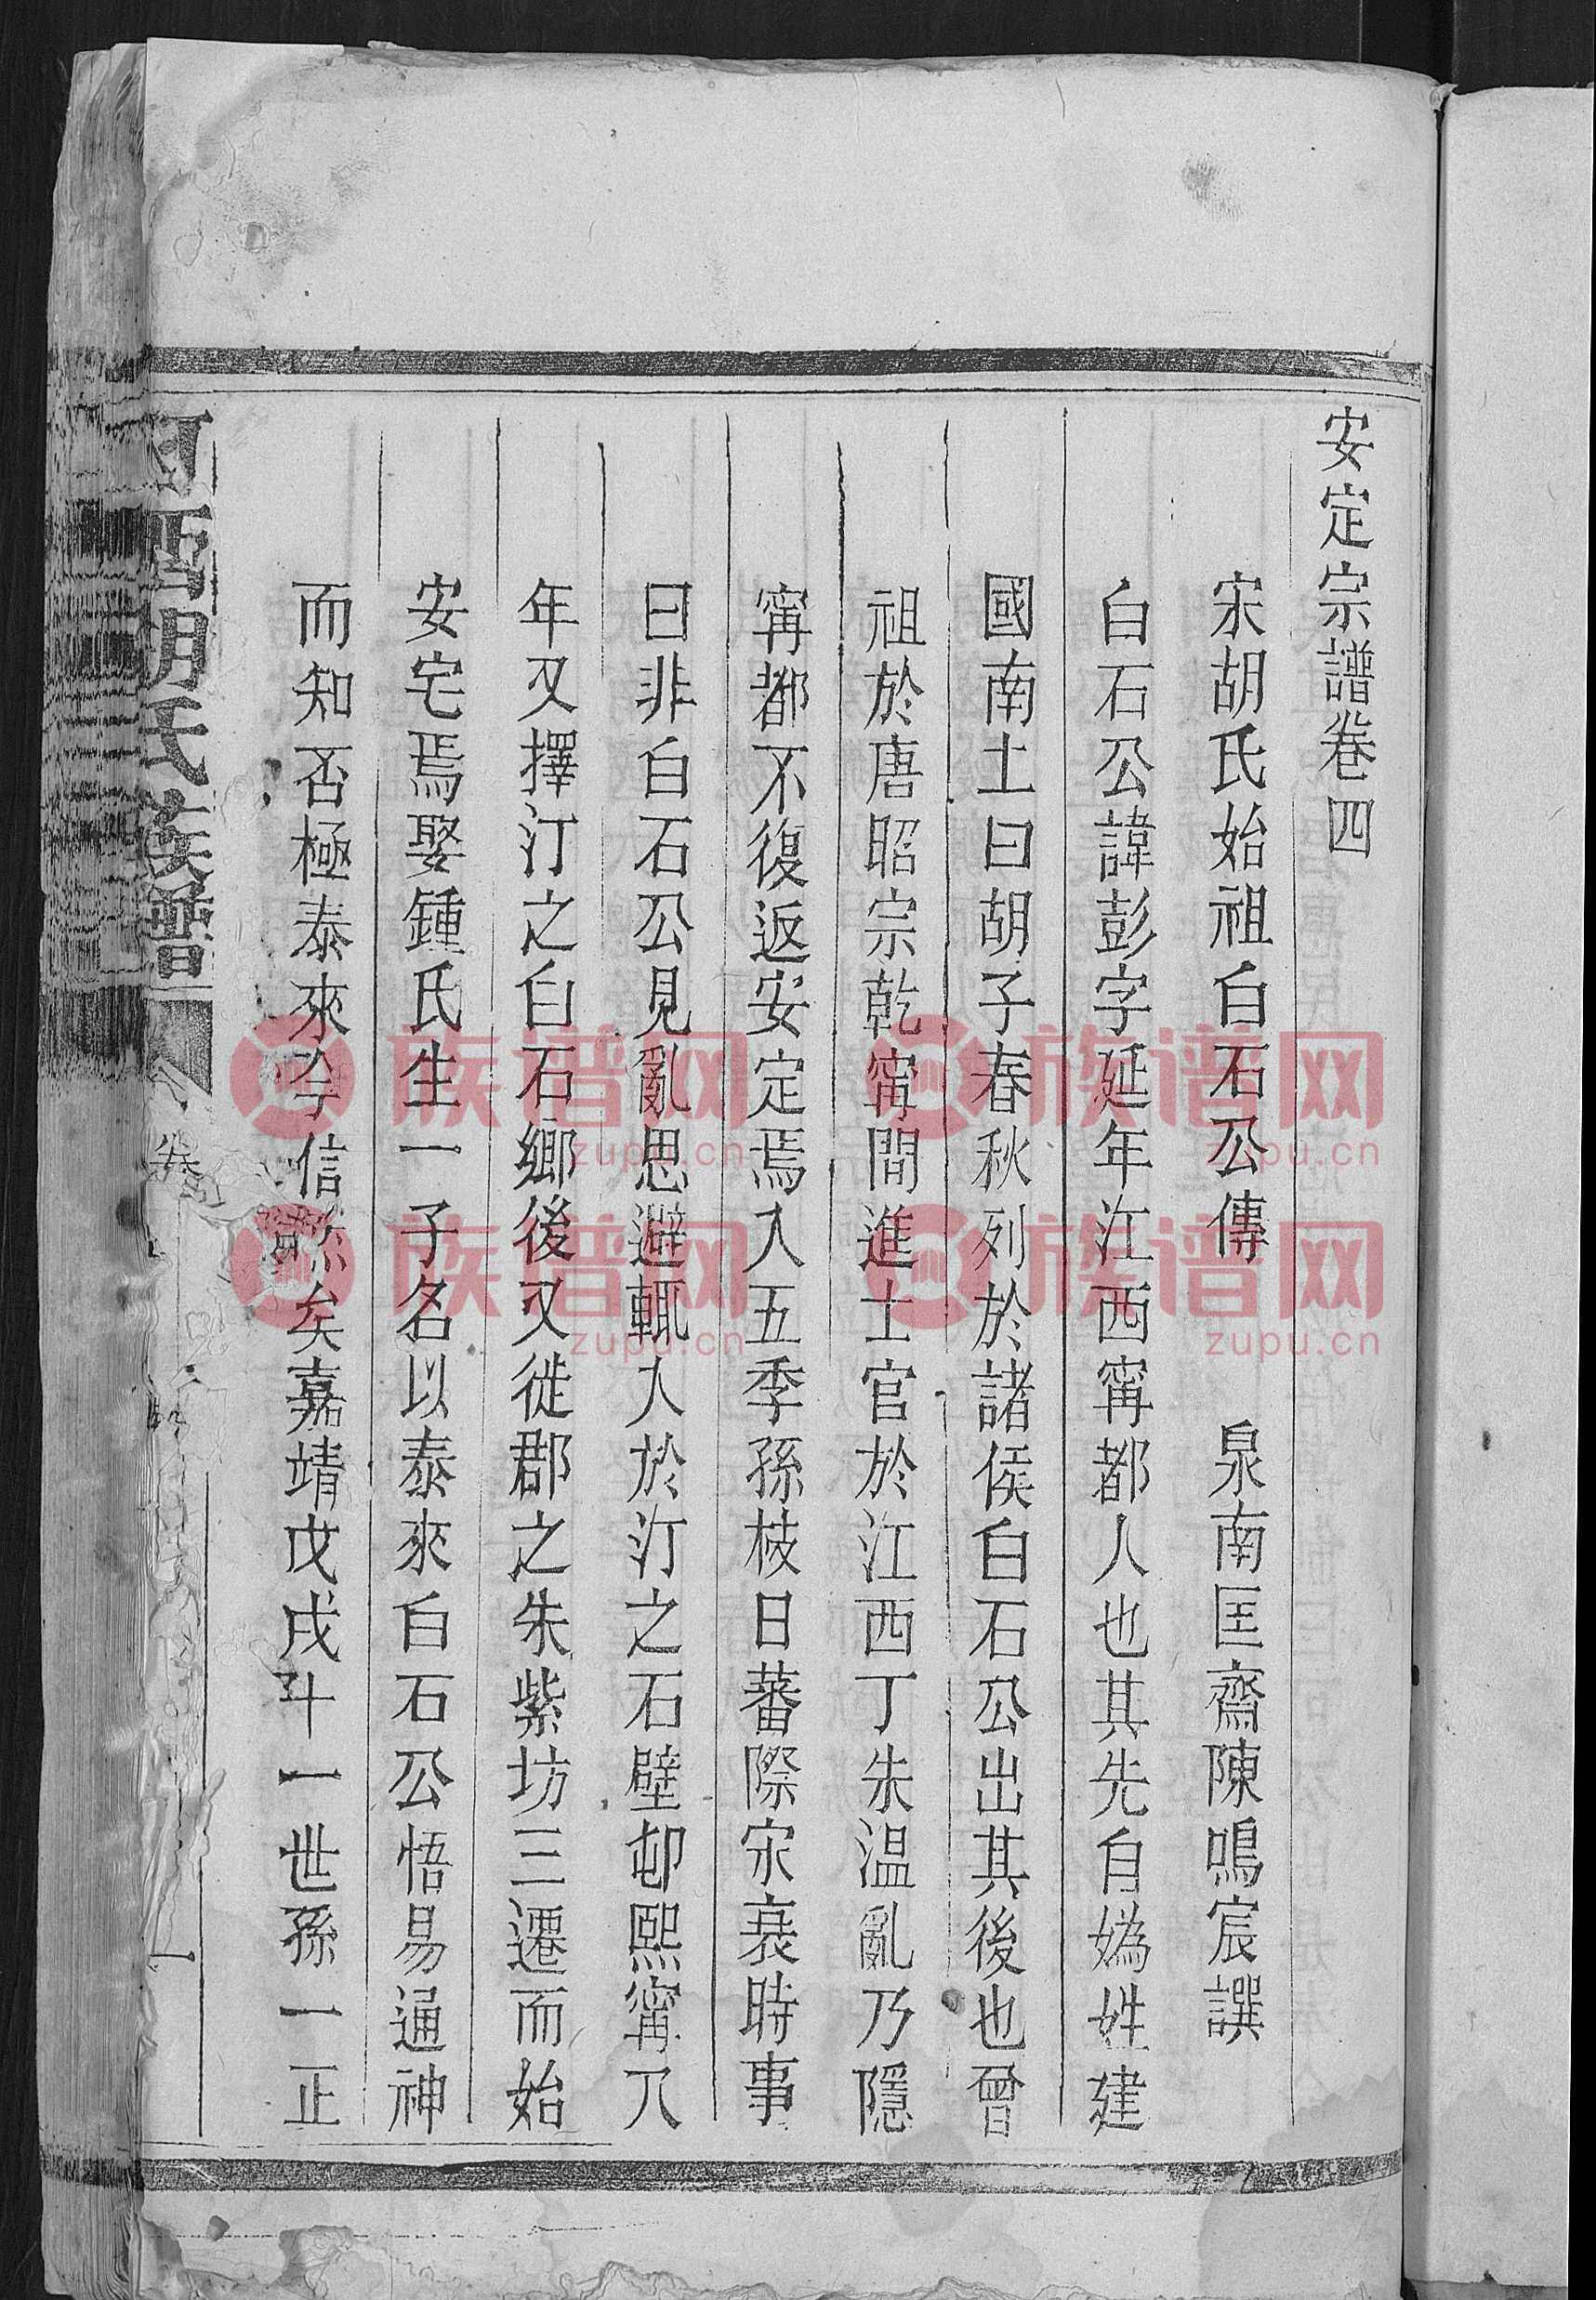 安定宗譜卷四
宋胡氏始祖白石公傳 泉南匡齋陳鳴宸譔
白石公諱彭字延年江西寗都人也其先自媯姓建
國南土曰胡子春秋列於諸侯白石公出其後也曾
祖於唐昭宗乾寗間進士官於江西丁朱温亂乃隱
寗都不復返安定焉入五季孫枝日蕃際宋衰時事
日非白石公見亂思避輒入於汀之石壁邨熙寗八
年又擇汀之白石鄉後又徙郡之朱紫坊三遷而始
安宅焉娶鍾氏生一子名以泰來白石公悟易通神
而知否極泰來今信然矣嘉靖戊戌斗一世孫一正
西胡氏族譜
卷
一
族谱网
zupu.cn
族谱网
zupu.cn
族谱网
zupu.cn
族谱网
zupu.cn